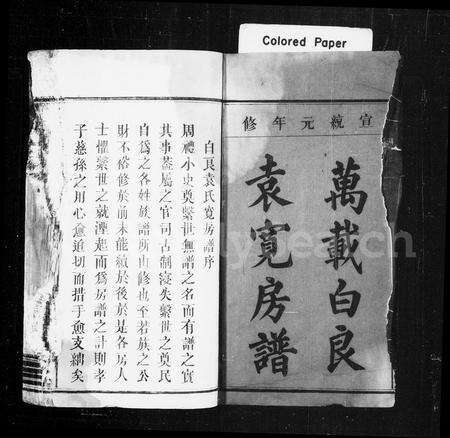 Colored Paper
宣統元年修
萬載白良
袁寬房譜
白良袁氏寬房譜序
周禮小史奠繫世無譜之名而有譜之實
其事蓋屬之官司古制寖失繫世之奠民
自為之各姓族譜所由修也至若族之公
財不俗修於前未能續於後於是各房人
士懼繫世之就湮起而為房譜之計則孝
子慈孫之用心愈迫切而措于愈支絀矣